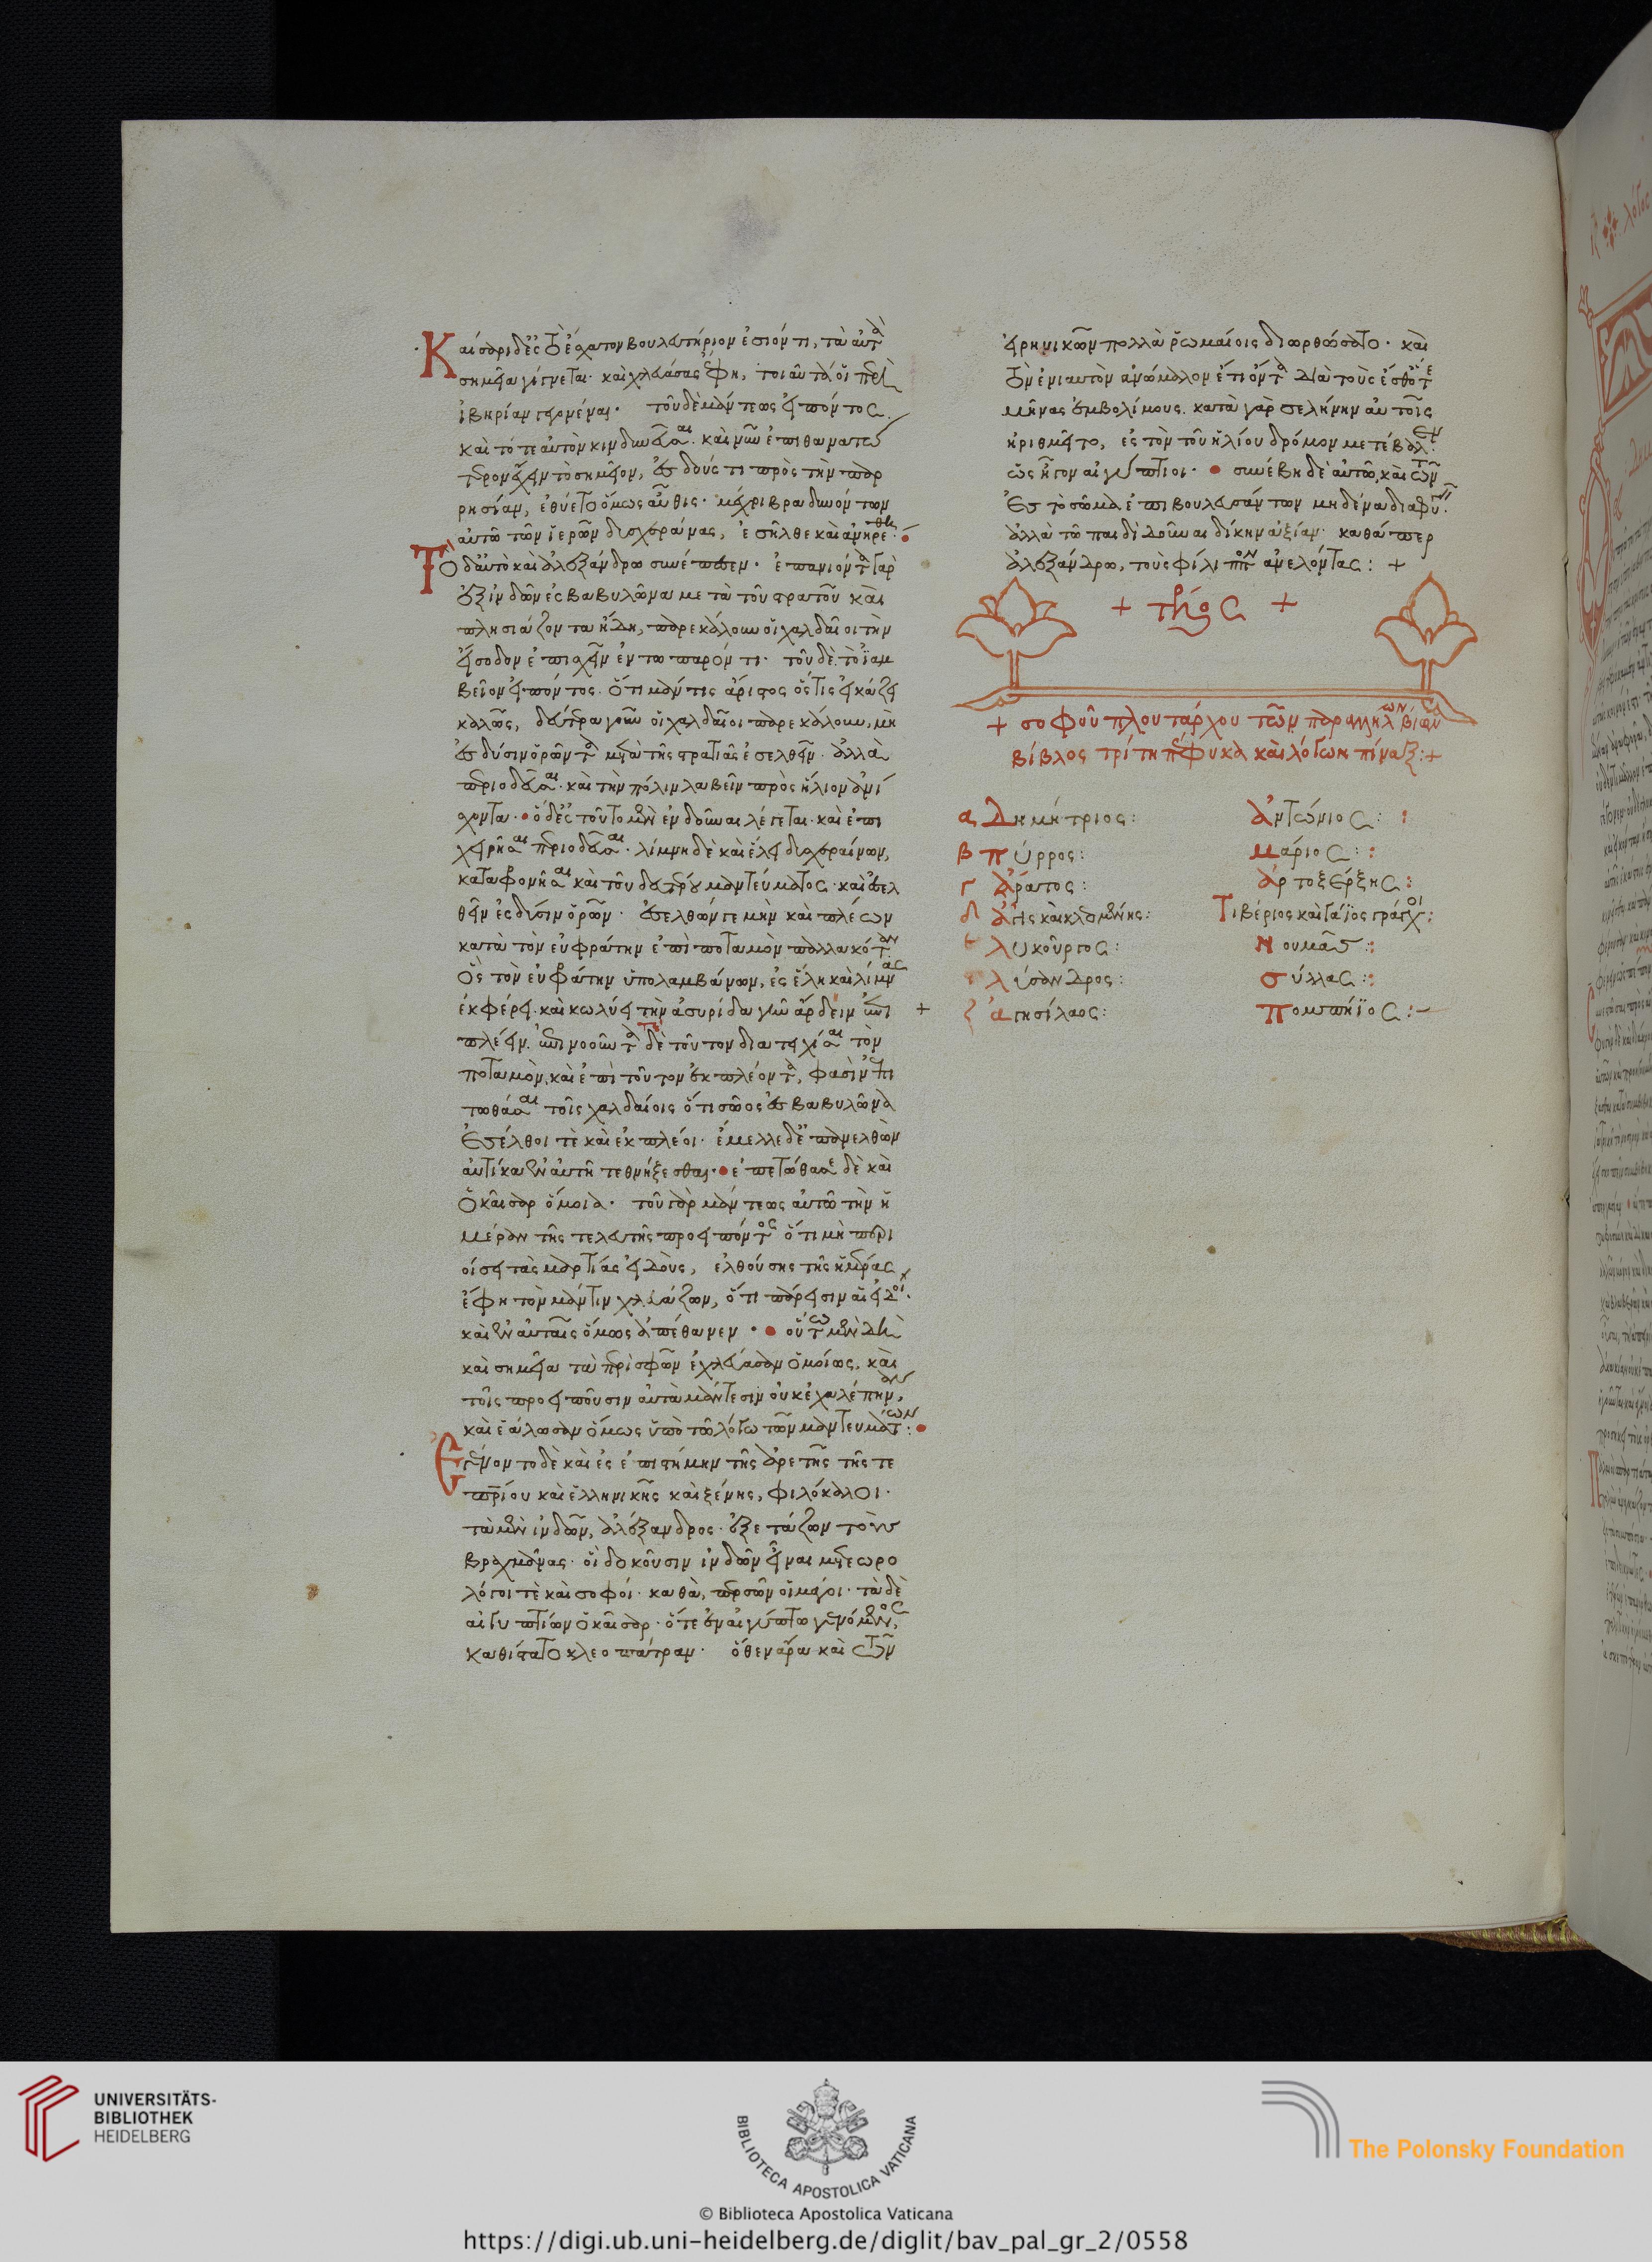 Καίσαρι δ' ἐς τὸ ἔσχατον βουλευτήριον ἐσιόντι, τὰ αὐτὰ
σημεῖα γίγνεται· καὶ χλευάσας ἔφη, τοιαῦτά οἱ περὶ
ἰβηρίαν γεγονέναι· τοῦ δὲ μάντεως εἰπόντος
καὶ τότε αὐτὸν κινδυνεῦσαι· καὶ νῦν ἐπιθανατώ
τερον ἔχειν τὸ σημεῖον, ἐνδούς τι πρὸς τὴν παρ
ρησίαν, ἐθύετο ὅμως αὖθις· μέχρι βραδυνόντων
αὐτῶ τῶν ἱερῶν δυσχεράνας, ἐσῆλθε καὶ ἀνηρέθη·
Τὸ δ' αὐτὸ καὶ ἀλεξάνδρω συνέπεσεν· ἐπανιόντα γὰρ
ἐξ ἰνδῶν ἐς βαβυλῶνα μετὰ τοῦ στρατοῦ καὶ
πλησιάζοντα ἤδη, παρεκάλουν οἱ χαλδαῖοι τὴν
εἴσοδον ἐπισχεῖν ἐν τῶ παρόντι· τοῦ δὲ τὸ ἰαμ
βεῖον εἰπόντος· ὅτι μάντις ἄριστος ὅστις εἰκάζει
καλῶς, δεύτερα γοῦν οἱ χαλδαῖοι παρεκάλουν, μὴ
ἐς δύσιν ὁρῶντα μετὰ τῆς στρατιᾶς ἐσελθεῖν· ἀλλὰ
περιοδεῦσαι· καὶ τὴν πόλιν λαβεῖν πρὸς ἥλιον ἀνί
σχοντα· ὁ δ' ἐς τοῦτο μὲν ἐνδοῦναι λέγεται· καὶ ἐπι
χειρῆσαι περιοδεῦσαι· λίμνη δὲ καὶ ἕλει δυσχεραίνων,
καταφρονῆσαι καὶ τοῦ δευτέρου μαντεύματος· καὶ ἐσελ
θεῖν ἐς δύσιν ὁρῶν· ἐσελθών γε μὴν καὶ πλέων
κατὰ τὸν εὐφράτην ἐπὶ ποταμὸν παλλακόταν·
ὃς τὸν εὐφράτην ὑπολαμβάνων, ἐς ἕλη καὶ λίμνας
ἐκφέρει· καὶ κωλύει τὴν ἀσυρίδα γῆν ἄρδειν ἐπι
πλέειν· ἐπινοοῦντα δὲ τοῦτον διατειχίσαι τὸν
ποταμὸν, καὶ ἐπὶ τοῦτον ἐκπλέοντα, φασὶν ἐπι
τωθάσαι τοῖς χαλδαίοις ὅτι σῶος ἐς βαβυλῶνα
ἐσέλθοι τὲ καὶ ἐκπλέοι· ἔμελλε δ' ἐπανελθὼν
αὐτίκα ἐν αὐτῆ τεθνήξεσθαι· ἐπετώθασε δὲ καὶ
ὁ καῖσαρ ὅμοια· τοῦ γὰρ μάντεως αὐτῶ τὴν ἡ
μέραν τῆς τελευτῆς προειπόντος ὅτι μὴ περι
οίσει τὰς μαρτίας εἰδοὺς, ἐλθούσης τῆς ἡμέρας
ἔφη τὸν μάντιν χλευάζων, ὅτι πάρεισιν αἱ εἰδοί·
καὶ ἐν αὐταῖς ὅμως ἀπέθανεν· οὕτω μὲν δὴ
καὶ σημεῖα τὰ περὶ σφῶν ἐχλεύασαν ὁμοίως, καὶ
τοῖς προειποῦσιν αὐτὰ μάντεσιν οὐκ ἐχαλέπηναν,
καὶ ἑάλωσαν ὅμως ὑπὸ τῶ λόγω τῶν μαντευμάτων:
Ἐγένοντο δὲ καὶ ἐς ἐπιστήμην τῆς ἀρετῆς τῆς τε
πατρίου καὶ ἑλληνικῆς καὶ ξένης, φιλόκαλοι·
τὰ μὲν ἰνδῶν, ἀλέξανδρος· ἐξετάζων τοὺς
βραχμᾶνας· οἳ δοκοῦσιν ἰνδῶν εἶναι μετεωρο
λόγοι τὲ καὶ σοφοί· καθὰ, περσῶν οἱ μάγοι· τὰ δὲ
αἰγυπτίων ὁ καῖσαρ· ὅτε ἐν αἰγύπτω γενόμενος,
καθίστατο κλεοπάτραν· ὅθεν ἄρα καὶ τῶν
εἰρηνικῶν πολλὰ ῥωμαίοις διωρθώσατο· καὶ
τὸν ἐνιαυτὸν ἀνώμαλον ἔτι ὄντα διὰ τοὺς ἔσθ' ὅτε
μῆνας ἐμβολίμους· κατὰ γὰρ σελήνην αὐτοῖς
ἠριθμεῖτο, ἐς τὸν τοῦ ἡλίου δρόμον μετέβαλεν·
ὡς ἦγον αἰγύπτιοι· συνέβη δὲ αὐτῶ, καὶ τῶν
ἐς τὸ σῶμα ἐπιβουλευσάντων μηδένα διαφυγεῖν·
ἀλλὰ τῶ παιδὶ δοῦναι δίκην ἀξίαν· καθάπερ
ἀλεξάνδρω, τοὺς φίλιππον ἀνελόντας: +
+ τέλος +
+ σοφοῦ πλουτάρχου τῶν παραλλήλων βίων
βίβλος τρίτη πέφυκα καὶ λόγων πίναξ:+
α Δημήτριος: Ἀντώνιος:
β πύρρος: Μάριος:
γ Ἄρατος: Ἀρτοξέρξης:
δ Ἄγις καὶ κλεομένης: Τιβέριος καὶ Γάϊος γράγχοι:
ε λυκοῦργος: Νουμᾶς:
ς λύσανδρος: σύλλας:
ζ ἀγησίλαος: πομπήϊος:
UNIVERSITÄTS-
BIBLIOTHEK
HEIDELBERG
BIBLIOTECA APOSTOLICA VATICANA
The Polonsky Foundation
© Biblioteca Apostolica Vaticana
https://digi.ub.uni-heidelberg.de/diglit/bav_pal_gr_2/0558